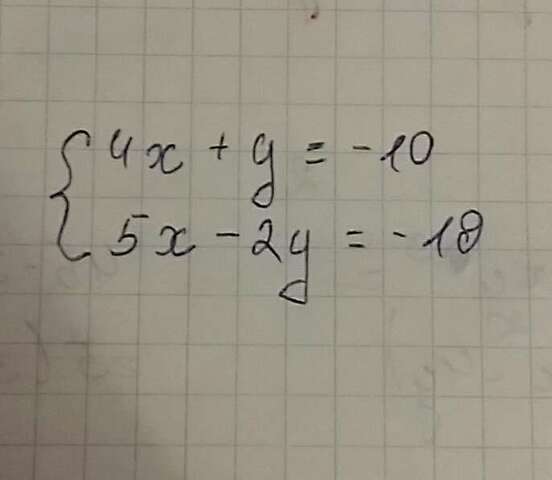 4x + y = -10
5x - 2y = -19